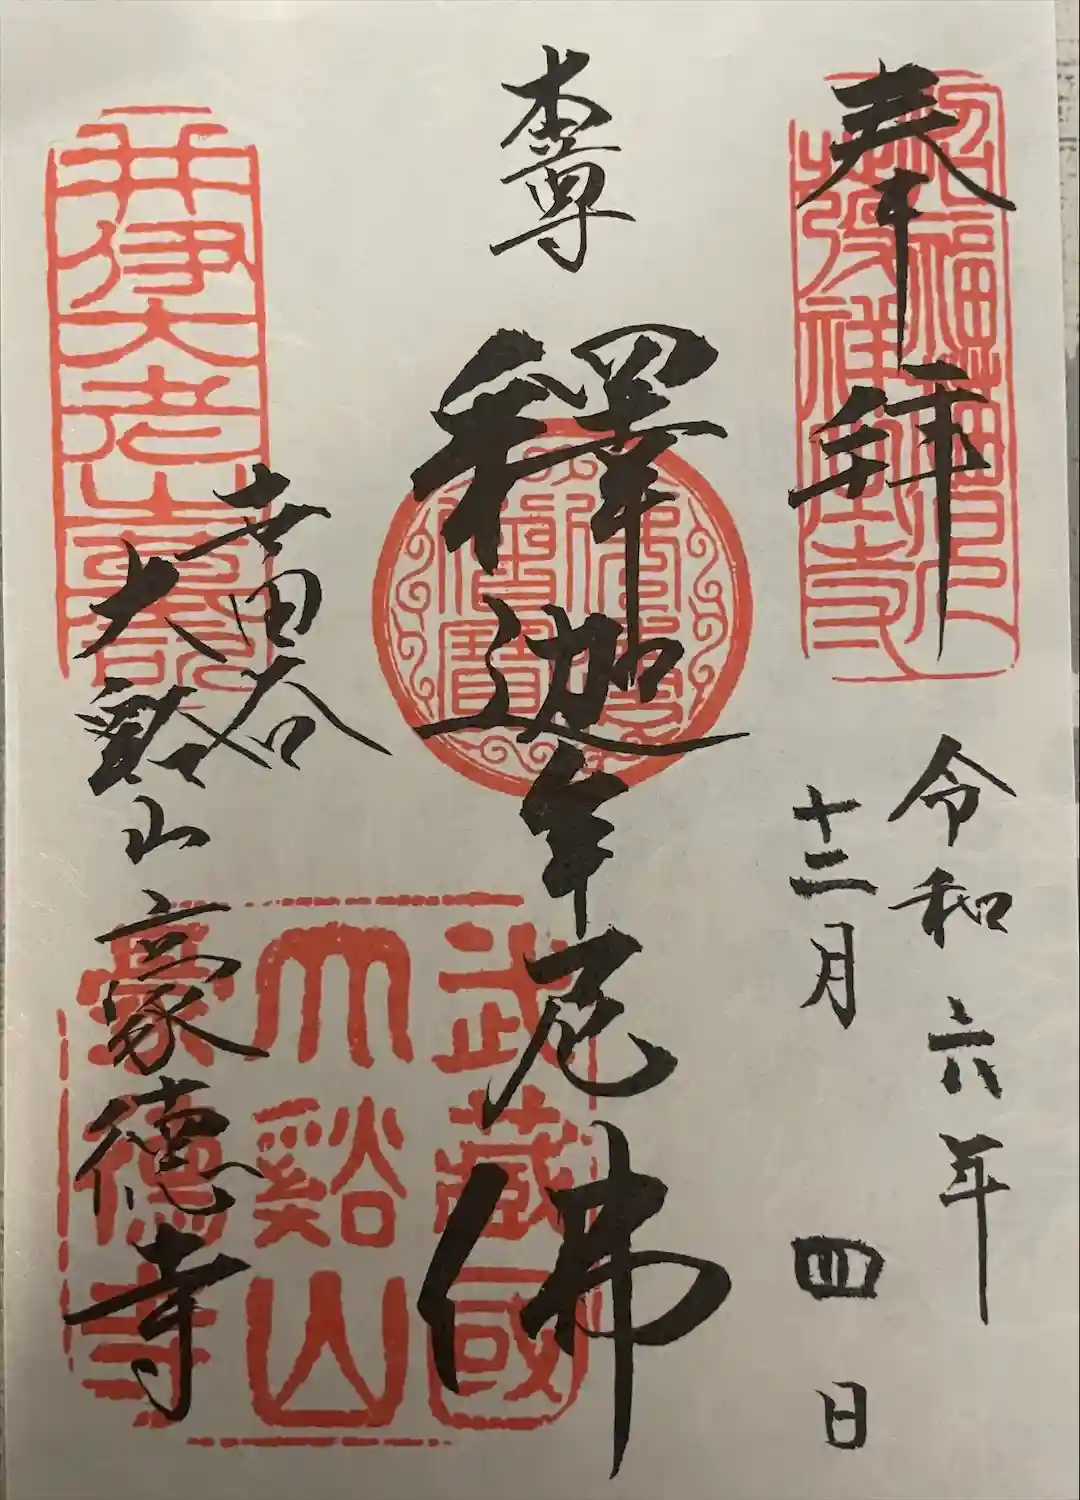 奉拝
令和六年
十二月四日
本尊
釋迦牟尼佛
世田谷
大谿山豪德寺
招福猫児
発祥之寺
佛法僧寶
井伊大老
武藏國
大谿山
豪德寺